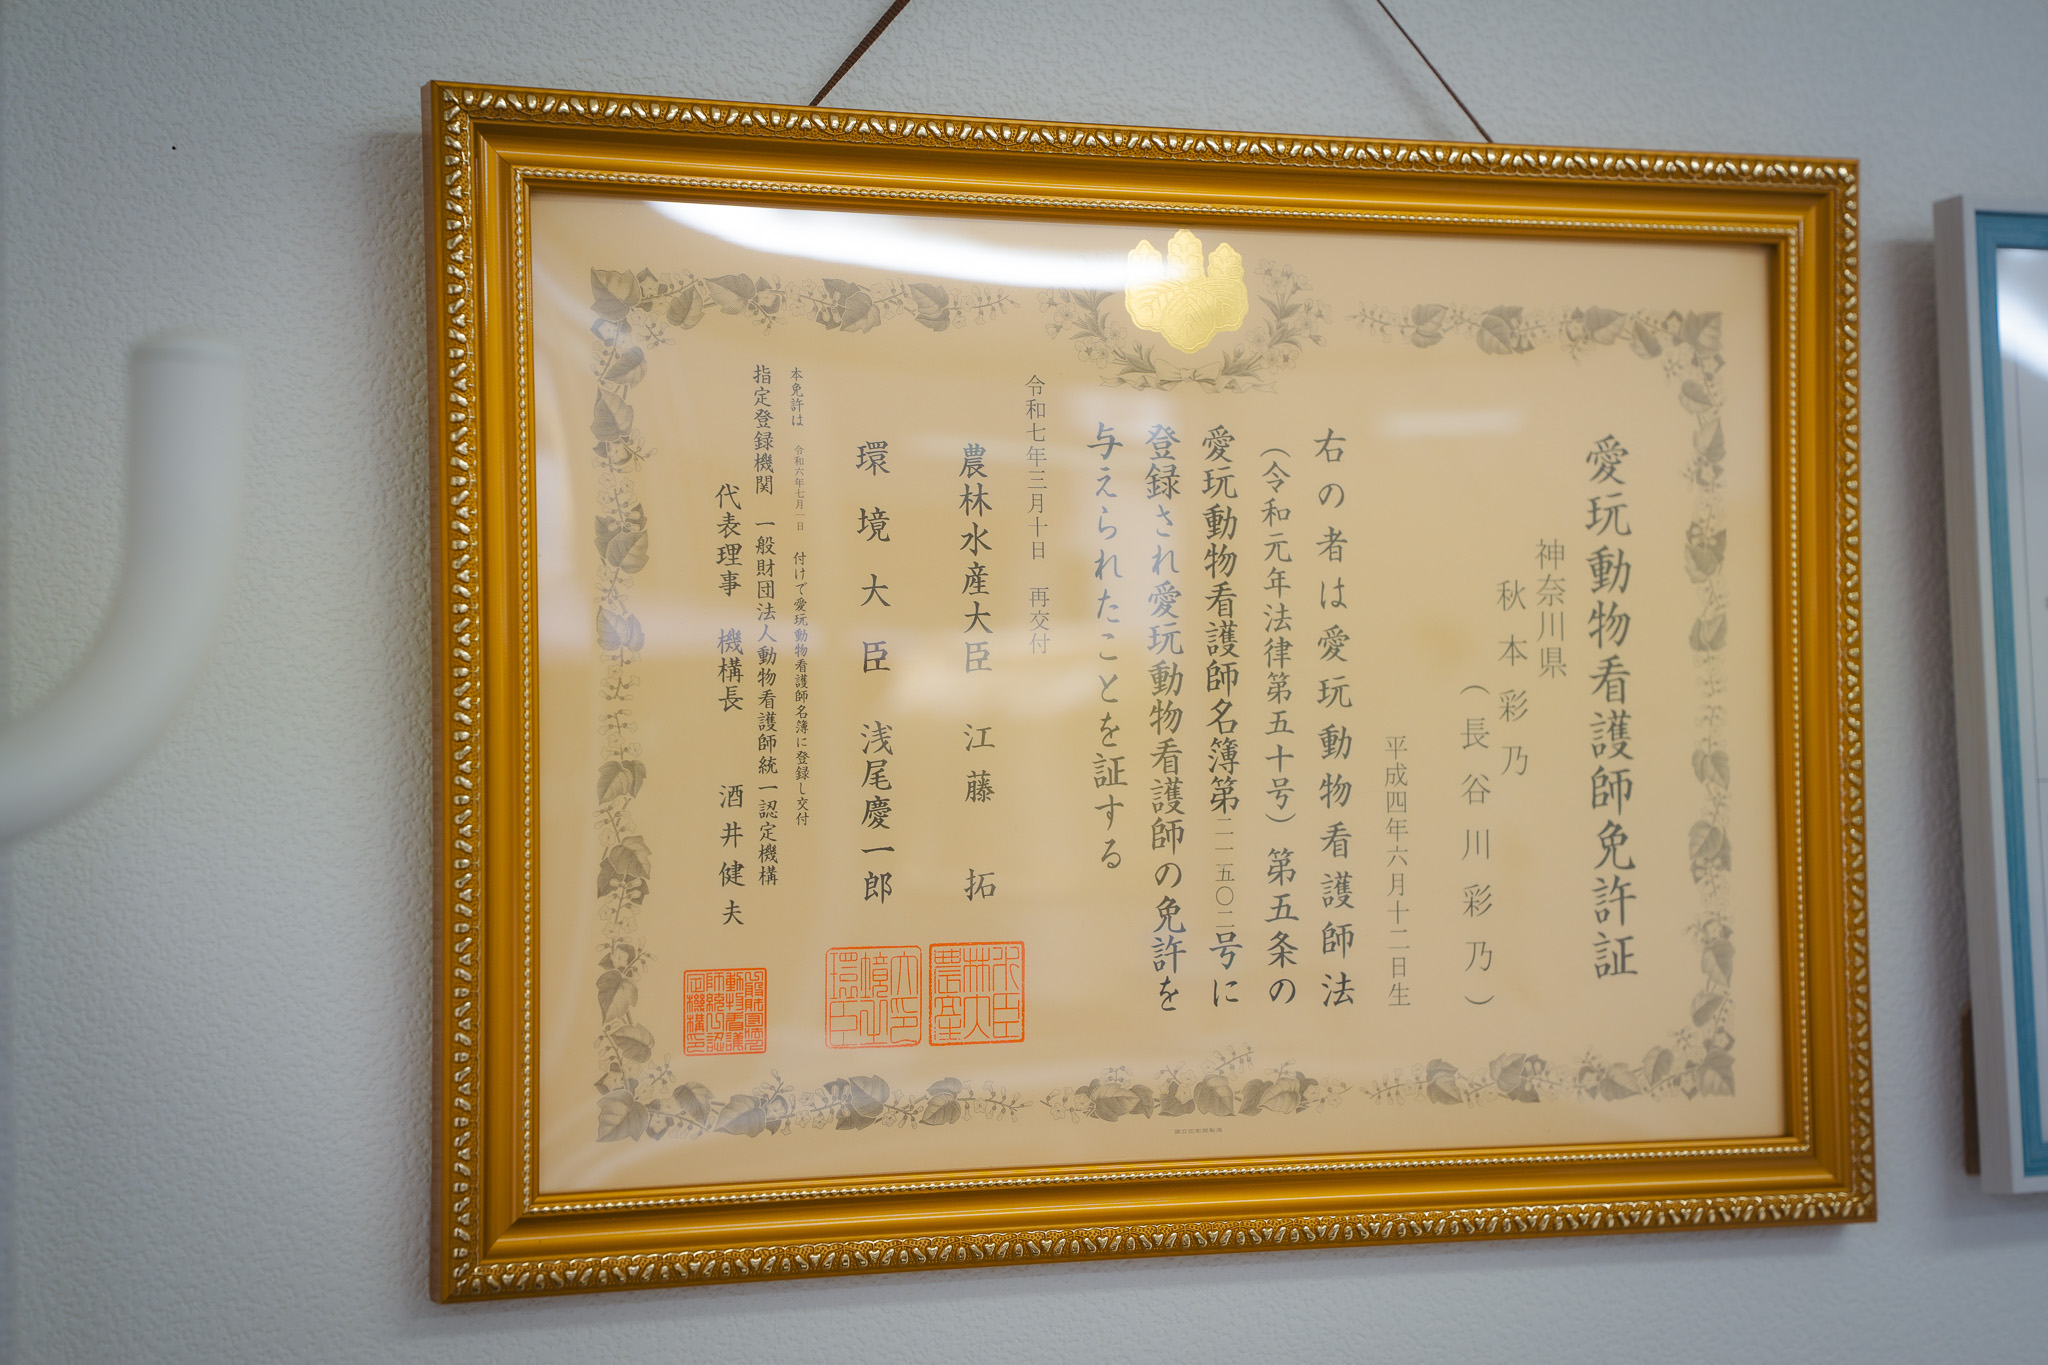 愛玩動物看護師免許証
神奈川県
秋本彩乃
（長谷川彩乃）
平成四年六月十二日生
右の者は愛玩動物看護師法
（令和元年法律第五十号）第五条の
愛玩動物看護師名簿第二一五〇二号に
登録され愛玩動物看護師の免許を
与えられたことを証する
令和七年三月十日　再交付
農林水産大臣　江藤　拓
環境大臣　浅尾慶一郎
本免許は　令和六年七月一日　付けで愛玩動物看護師名簿に登録し交付
指定登録機関　一般財団法人動物看護師統一認定機構
代表理事　機構長　酒井健夫